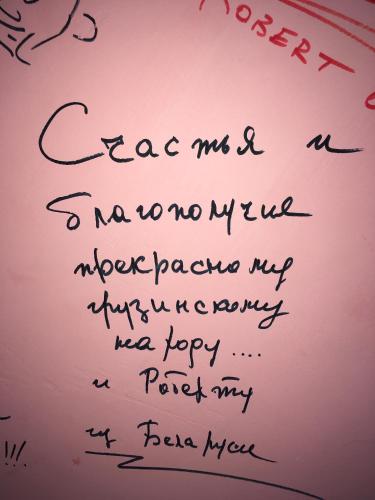 ROBERT
Счастья и
благополучия
прекрасному
грузинскому
народу....
и Роберту
из Беларуси
!!!